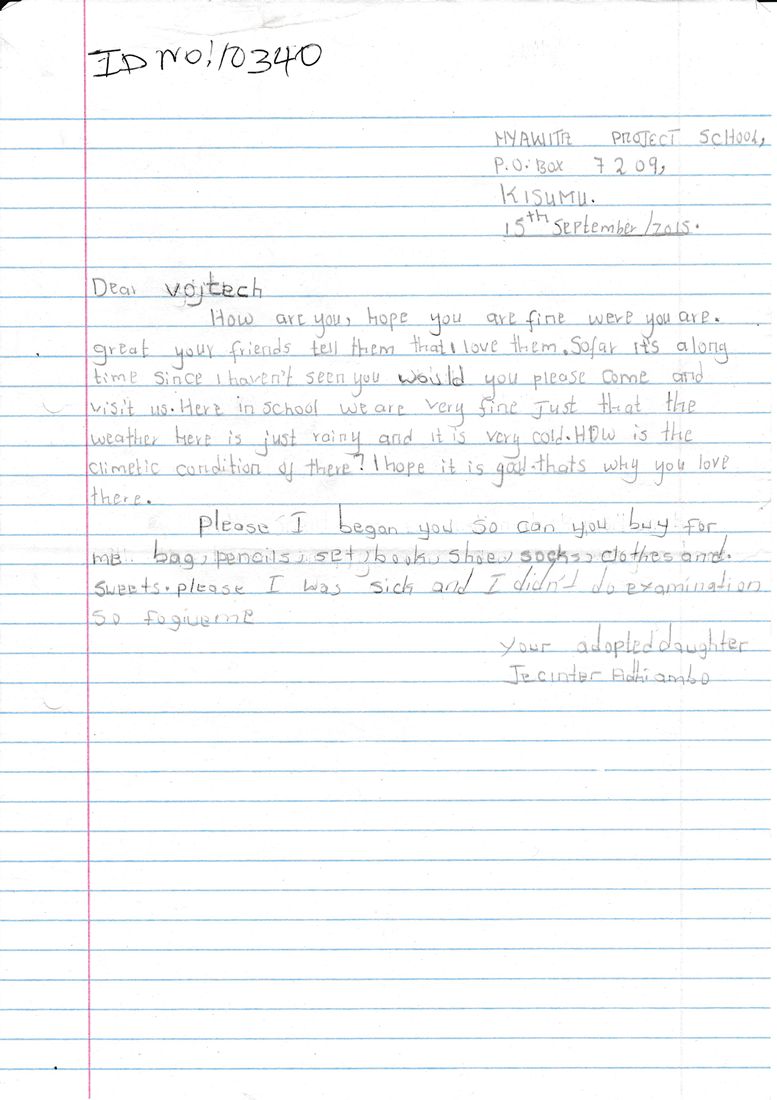 ID NO: 10340
NYAWITA PROJECT SCHOOL,
P.O. Box 7209,
KISUMU.
15th September/2015.
Dear vojtech
How are you, hope you are fine were you are.
great your friends tell them that I love them. Sofar it's along
time since I haven't seen you would you please come and
visit us. Here in school we are very fine just that the
weather here is just rainy and it is very cold. How is the
climetic condition of there? I hope it is god. thats why you love
there.
please I began you so can you buy for
me bag, pencils, set, book, shoe, socks, clothes and.
sweets. please I was sick and I didn't do examination
so fogiveme
your adopted daughter
Jecinter Adhiambo